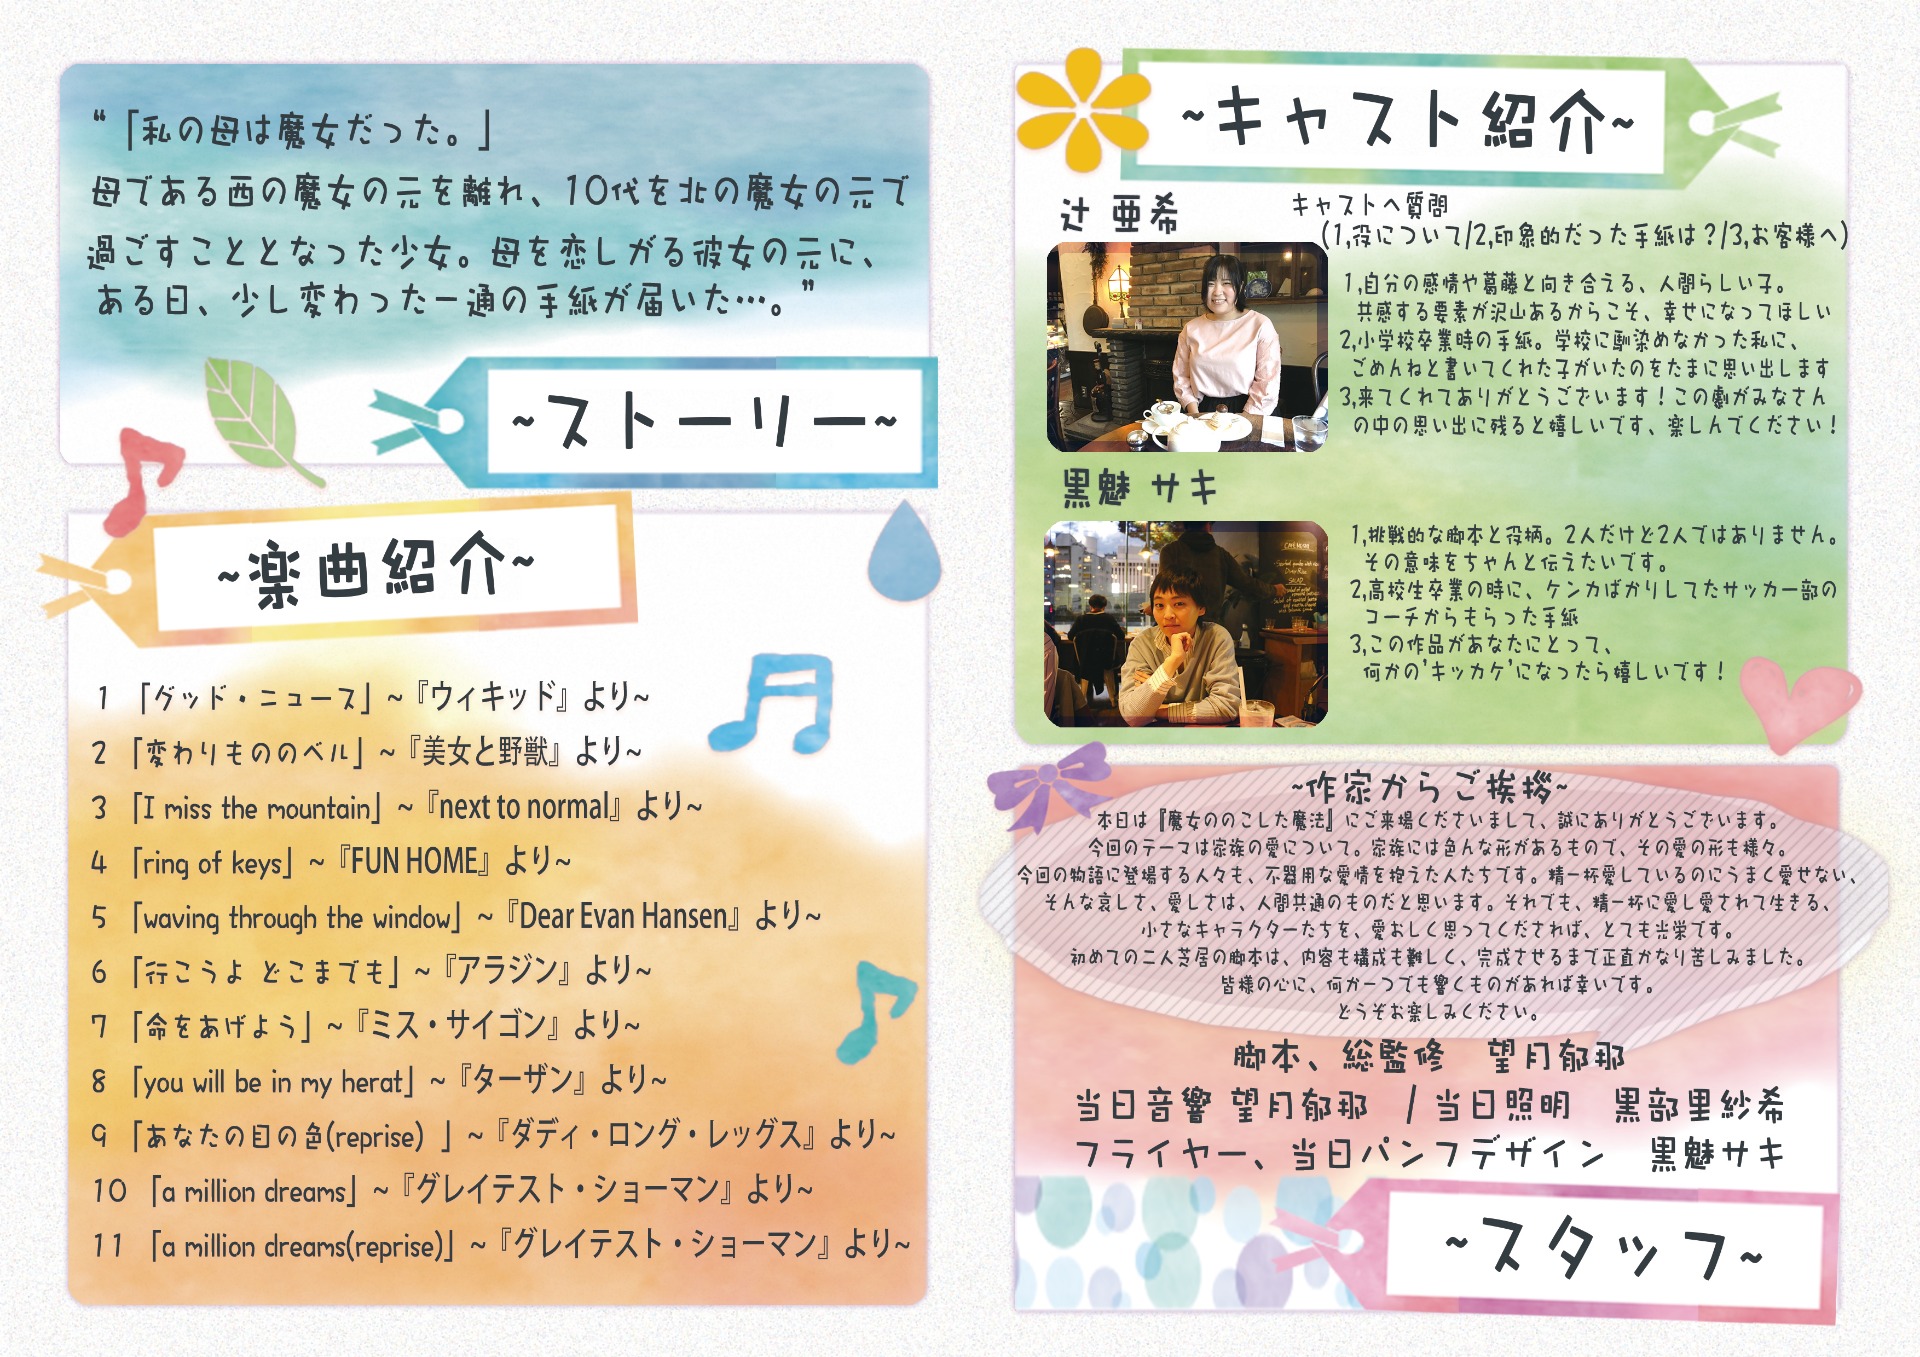 “「私の母は魔女だった。」
母である西の魔女の元を離れ、10代を北の魔女の元で
過ごすこととなった少女。母を恋しがる彼女の元に、
ある日、少し変わった一通の手紙が届いた…。”
~ストーリー~
~楽曲紹介~
1 「グッド・ニュース」~『ウィキッド』より~
2 「変わりもののベル」~『美女と野獣』より~
3 「I miss the mountain」~『next to normal』より~
4 「ring of keys」~『FUN HOME』より~
5 「waving through the window」~『Dear Evan Hansen』より~
6 「行こうよ どこまでも」~『アラジン』より~
7 「命をあげよう」~『ミス・サイゴン』より~
8 「you will be in my herat」~『ターザン』より~
9 「あなたの目の色(reprise) 」~『ダディ・ロング・レッグス』より~
10 「a million dreams」~『グレイテスト・ショーマン』より~
11 「a million dreams(reprise)」~『グレイテスト・ショーマン』より~
~キャスト紹介~
辻 亜希
キャストへ質問
(1,役について/2,印象的だった手紙は?/3,お客様へ)
1,自分の感情や葛藤と向き合える、人間らしい子。
共感する要素が沢山あるからこそ、幸せになってほしい
2,小学校卒業時の手紙。学校に馴染めなかった私に、
ごめんねと書いてくれた子がいたのをたまに思い出します
3,来てくれてありがとうございます!この劇がみなさん
の中の思い出に残ると嬉しいです、楽しんでください!
黒魅 サキ
1,挑戦的な脚本と役柄。2人だけど2人ではありません。
その意味をちゃんと伝えたいです。
2,高校生卒業の時に、ケンカばかりしてたサッカー部の
コーチからもらった手紙
3,この作品があなたにとって、
何かの'キッカケ'になったら嬉しいです!
~作家からご挨拶~
本日は『魔女ののこした魔法』にご来場くださいまして、誠にありがとうございます。
今回のテーマは家族の愛について。家族には色んな形があるもので、その愛の形も様々。
今回の物語に登場する人々も、不器用な愛情を抱えた人たちです。精一杯愛しているのにうまく愛せない、
そんな哀しさ、愛しさは、人間共通のものだと思います。それでも、精一杯に愛し愛されて生きる、
小さなキャラクターたちを、愛おしく思ってくだされば、とても光栄です。
初めての二人芝居の脚本は、内容も構成も難しく、完成させるまで正直かなり苦しみました。
皆様の心に、何か一つでも響くものがあれば幸いです。
どうぞお楽しみください。
脚本、総監修 望月郁那
当日音響 望月郁那 /当日照明 黒部里紗希
フライヤー、当日パンフデザイン 黒魅サキ
~スタッフ~